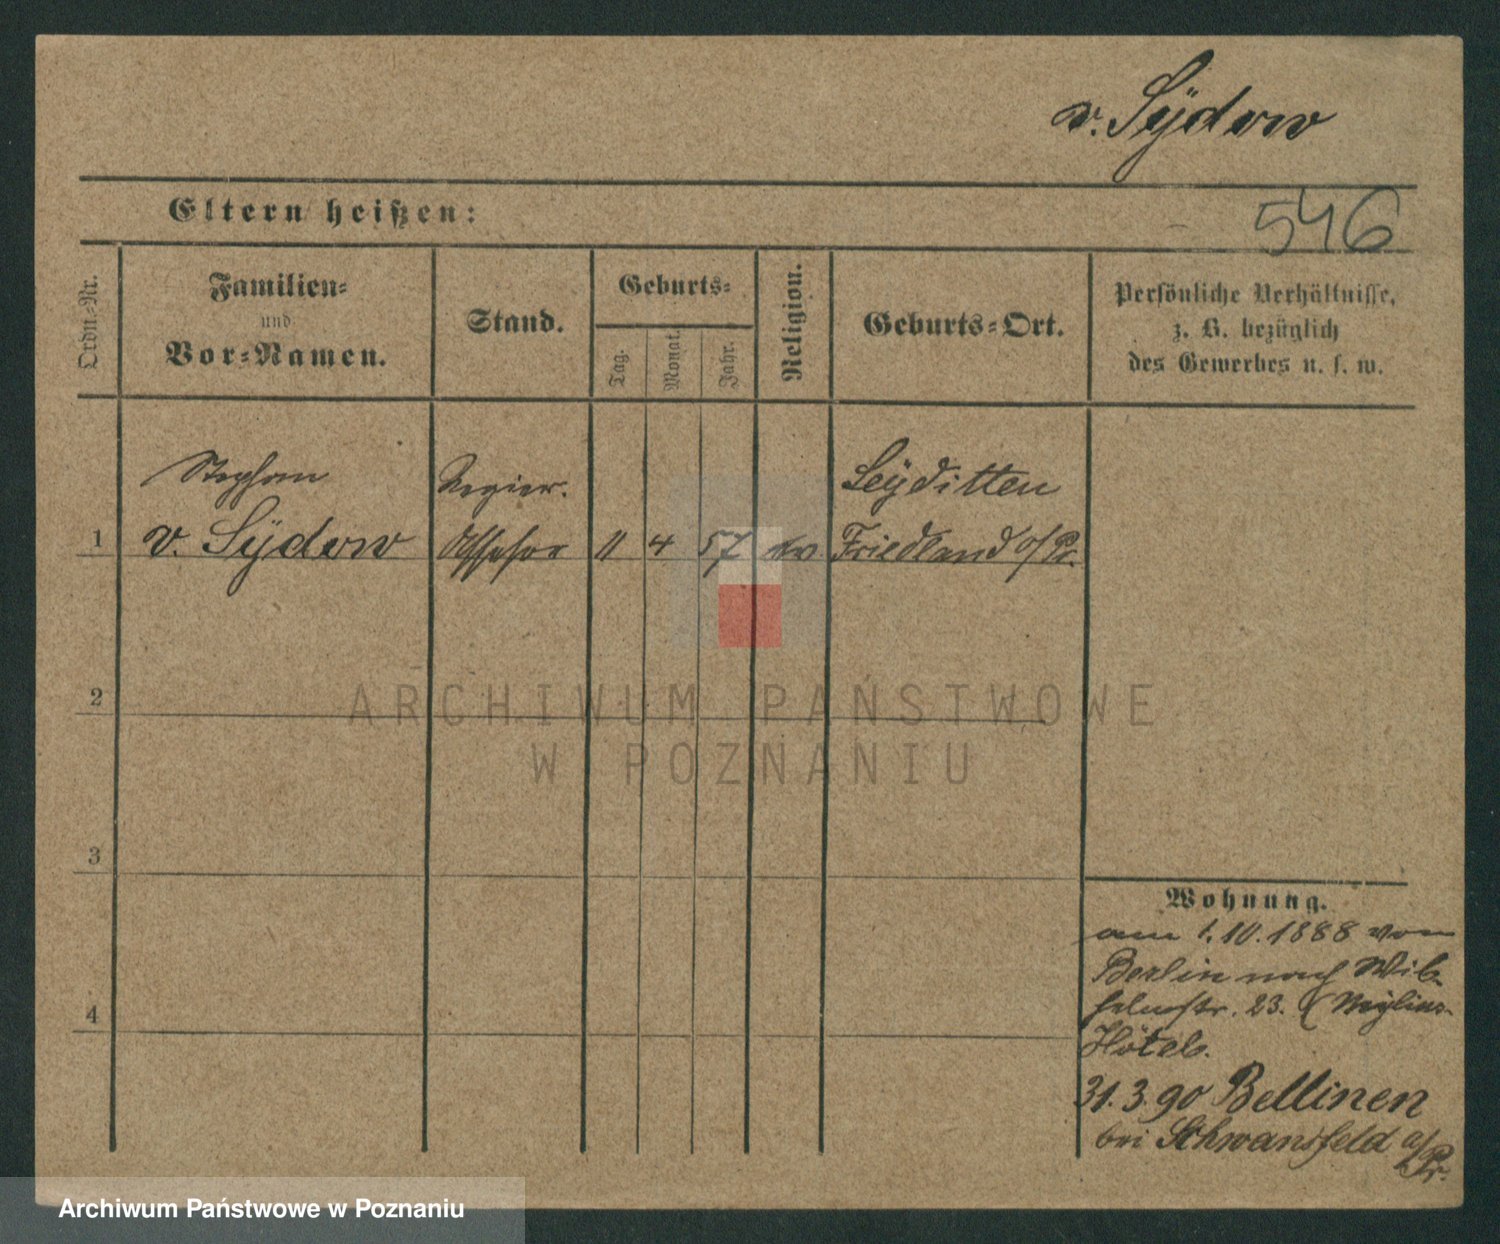 v. Sÿdow
Eltern heißen:
546
Ordn.-Nr.
Familien-
und
Vor-Namen.
Stand.
Geburts-
Tag.
Monat.
Jahr.
Religion.
Geburts-Ort.
Persönliche Verhältnisse,
z. B. bezüglich
des Gewerbes u. s. w.
Stephan Regier. Leÿditten
1 v. Sÿdow Assessor 11 4 57 ev Friedland o/Pr.
2
3
4
Wohnung.
am 1.10.1888 von
Berlin nach Wil-
helmstr. 23. (Mylius-
Hôtel.
31.3.90 Bellinen
bei Schwansfeld o/Pr.
ARCHIWUM PAŃSTWOWE
W POZNANIU
Archiwum Państwowe w Poznaniu